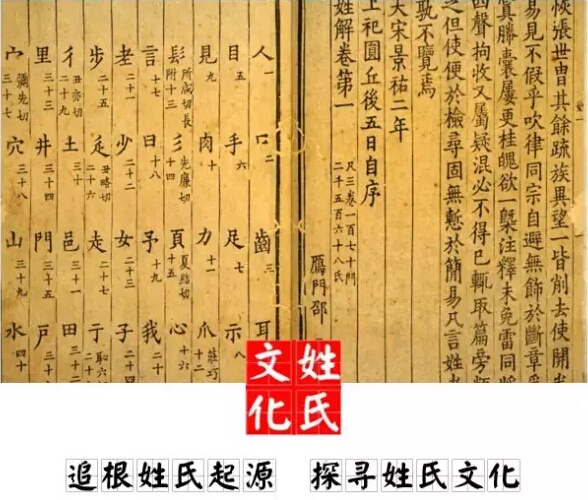 恢張世冑其餘疏族異望一皆削去使開
易見不假乎吹律同宗自避無飾於斷章
賸囊屢更桂魄欲一槩注釋未免雷同
四聲拘收又屬疑混必不得已輒取篇旁
之但使便於檢尋固無慙於簡易凡言姓
不覽焉
大宋景祐二年
上祀圓丘後五日自序
姓解卷第一
凡三卷一百七十門
二千五百六十八氏
鴈門邵
人一 口二 齒三 耳
目五 手六 足七 示
見九 肉十 力十一 爪莊巧
髟所銜切長附十三 彡先廉切 頁夏結切十五 心十六
言十七 曰十八 予十九 我二十
老二十一 少二十二 女二十三 子二十
步二十五 辵丑略切二十六 走二十七 亍恥六
彳丑亦切二十九 土三十 邑三十一 田三十二
里三十三 井三十四 門三十五 戶三十六
宀彌先切三十七 穴三十八 山三十九 水四十
姓氏
文化
追根姓氏起源 探寻姓氏文化